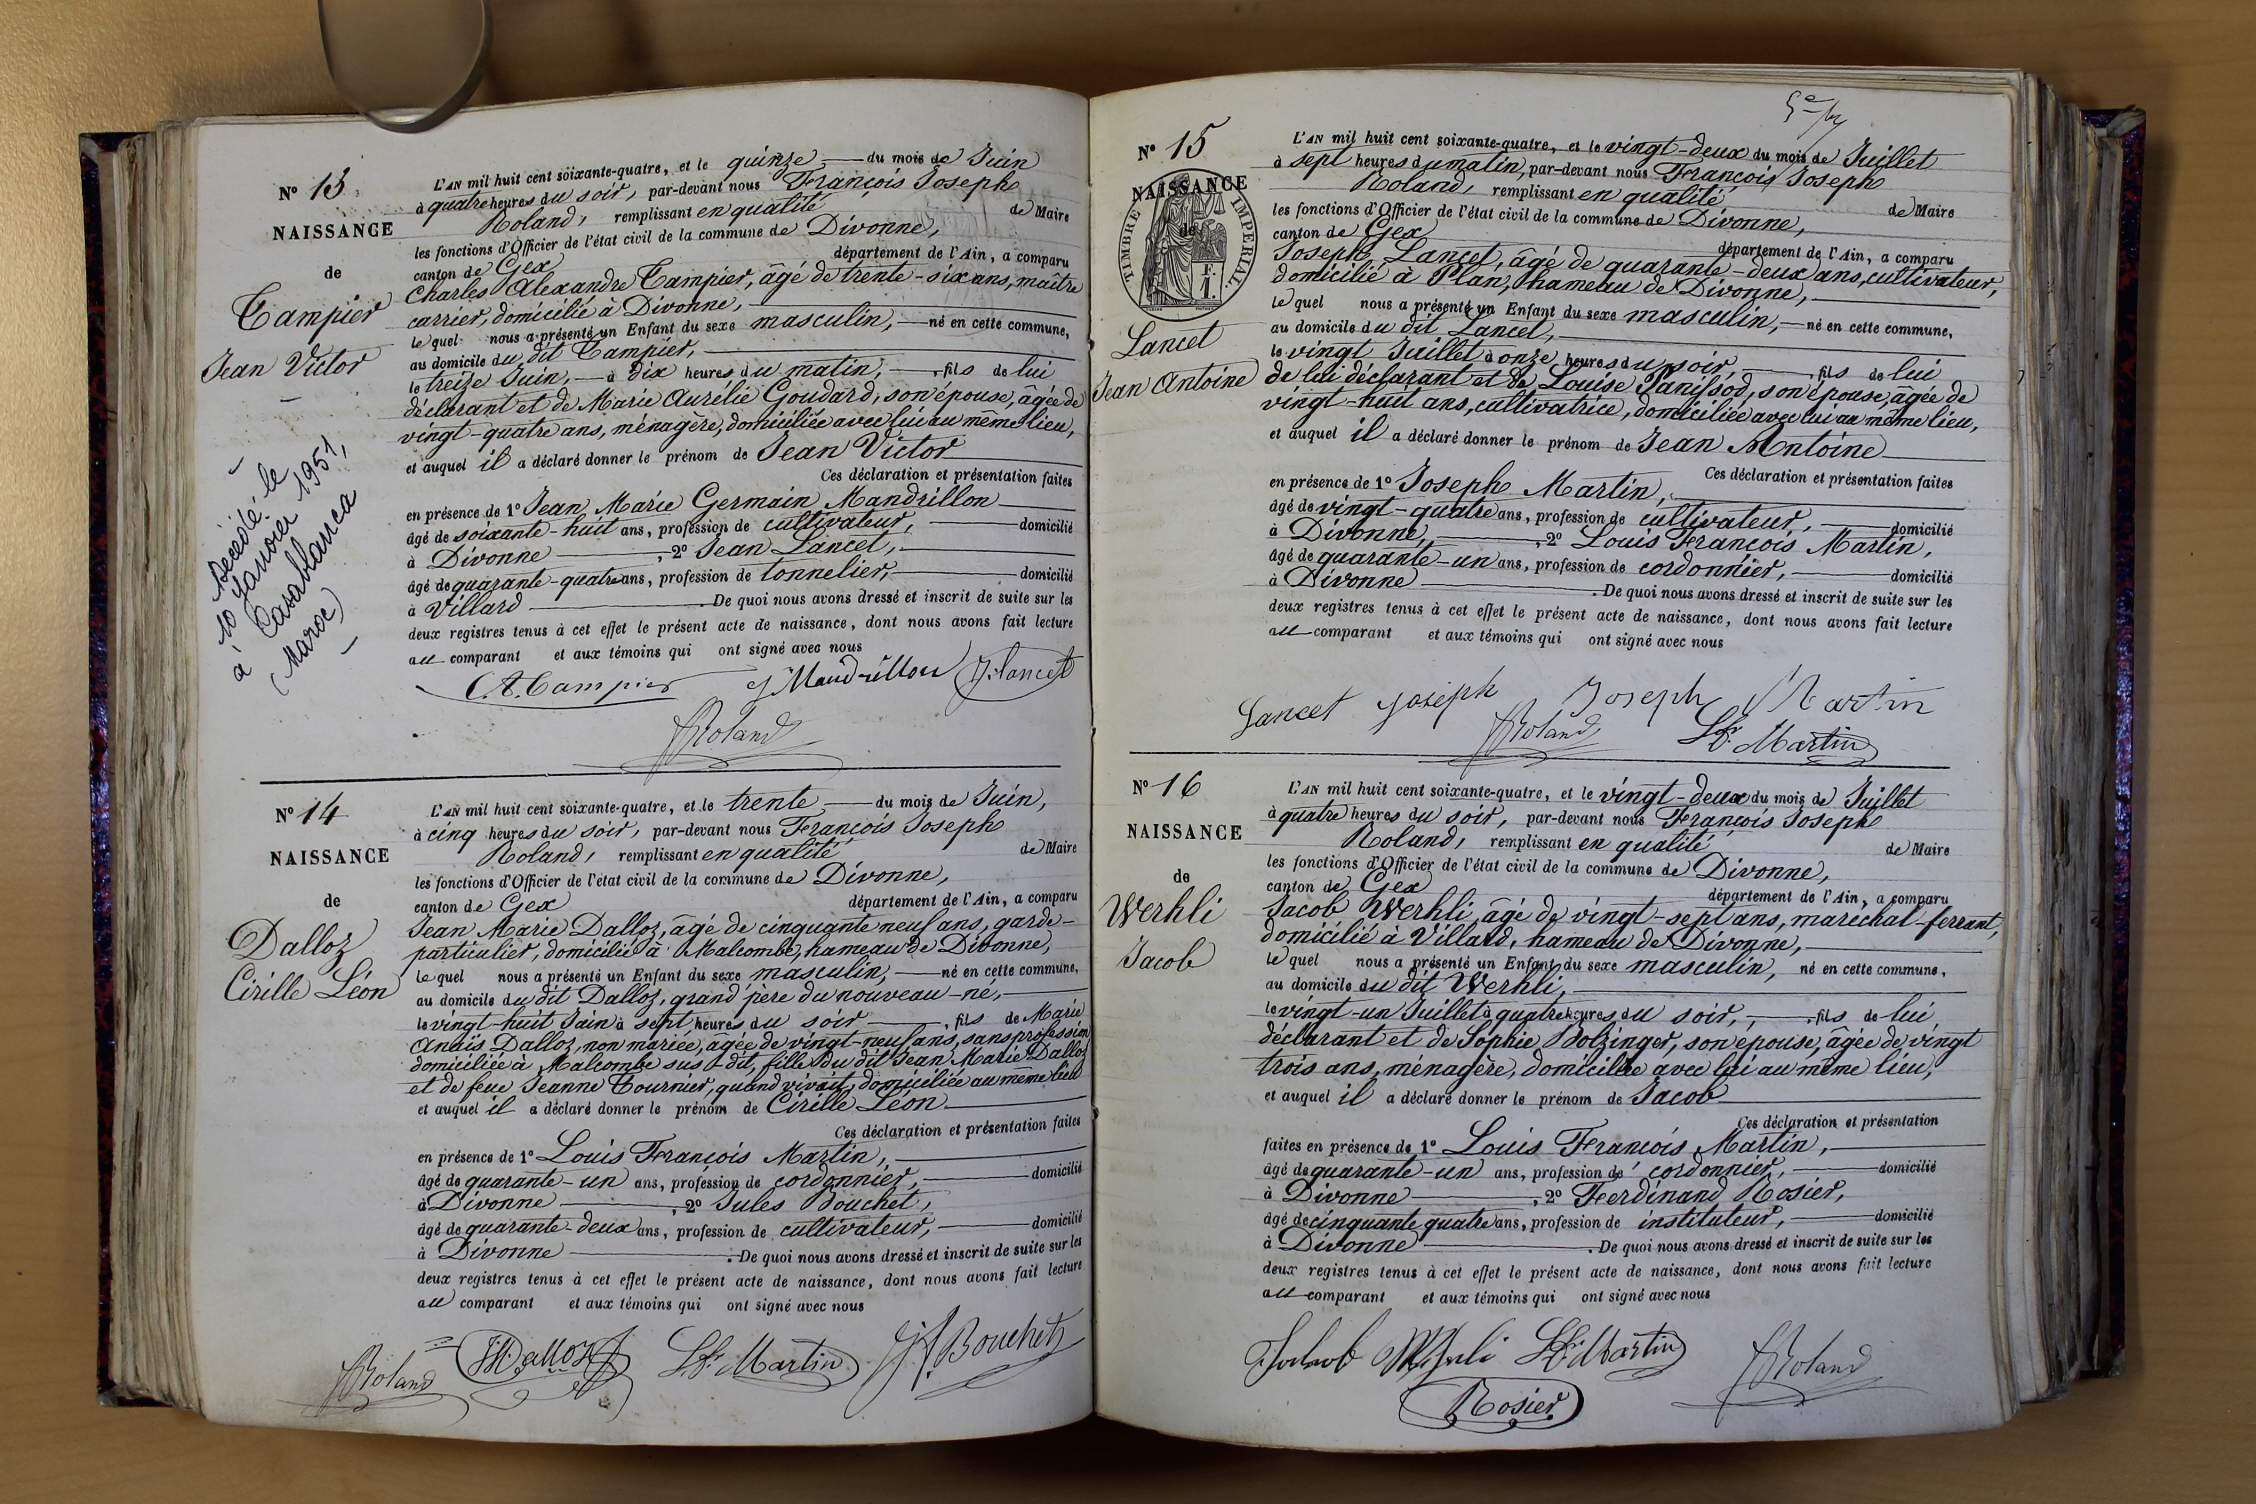 N° 13
NAISSANCE
de
Campier
Jean Victor
Décédé le
10 Janvier 1951,
à Casablanca
(Maroc)
L'AN mil huit cent soixante-quatre, et le quinze du mois de Juin
à quatre heures du soir, par-devant nous François Joseph
Roland, remplissant en qualité de Maire
les fonctions d'Officier de l'état civil de la commune de Divonne,
canton de Gex département de l'Ain, a comparu
Charles Alexandre Campier, âgé de trente-six ans, maître
carrier, domicilié à Divonne,
lequel nous a présenté un Enfant du sexe masculin, né en cette commune,
au domicile du dit Campier,
le treize Juin, à dix heures du matin, fils de lui
déclarant et de Marie Aurélie Goudard, son épouse, âgée de
vingt-quatre ans, ménagère, domiciliée avec lui au même lieu,
et auquel il a déclaré donner le prénom de Jean Victor
Ces déclaration et présentation faites
en présence de 1° Jean Marie Germain Mandrillon
âgé de soixante-huit ans, profession de cultivateur, domicilié
à Divonne, 2° Jean Lancet,
âgé de quarante-quatre ans, profession de tonnelier, domicilié
à Villard. De quoi nous avons dressé et inscrit de suite sur les
deux registres tenus à cet effet le présent acte de naissance, dont nous avons fait lecture
au comparant et aux témoins qui ont signé avec nous
C.A. Campier J Mandrillon J. Lancet
Roland
N° 14
NAISSANCE
de
Dalloz
Cirille Léon
L'AN mil huit cent soixante-quatre, et le trente du mois de Juin,
à cinq heures du soir, par-devant nous François Joseph
Roland, remplissant en qualité de Maire
les fonctions d'Officier de l'état civil de la commune de Divonne,
canton de Gex département de l'Ain, a comparu
Jean Marie Dalloz, âgé de cinquante neuf ans, garde-
particulier, domicilié à Malcombe, hameau de Divonne,
lequel nous a présenté un Enfant du sexe masculin, né en cette commune,
au domicile du dit Dalloz, grand père du nouveau-né,
le vingt-huit Juin à sept heures du soir, fils de Marie
Anaïs Dalloz, non mariée, âgée de vingt-neuf ans, sans profession
domiciliée à Malcombe sus-dit, fille du dit Jean Marie Dalloz
et de feue Jeanne Tournier, quand vivait, domiciliée au même lieu
et auquel il a déclaré donner le prénom de Cirille Léon
Ces déclaration et présentation faites
en présence de 1° Louis François Martin,
âgé de quarante-un ans, profession de cordonnier, domicilié
à Divonne, 2° Jules Bouchet,
âgé de quarante-deux ans, profession de cultivateur, domicilié
à Divonne. De quoi nous avons dressé et inscrit de suite sur les
deux registres tenus à cet effet le présent acte de naissance, dont nous avons fait lecture
au comparant et aux témoins qui ont signé avec nous
Roland Dalloz L. F. Martin J. Bouchet
N° 15
NAISSANCE
de
TIMBRE IMPERIAL.
Lancet
Jean Antoine
L'AN mil huit cent soixante-quatre, et le vingt-deux du mois de Juillet
à sept heures du matin, par-devant nous François Joseph
Roland, remplissant en qualité de Maire
les fonctions d'Officier de l'état civil de la commune de Divonne,
canton de Gex département de l'Ain, a comparu
Joseph Lancet, âgé de quarante-deux ans, cultivateur,
domicilié à Plan, hameau de Divonne,
lequel nous a présenté un Enfant du sexe masculin, né en cette commune,
au domicile du dit Lancet,
le vingt Juillet à onze heures du soir, fils de lui
de lui déclarant et de Louise Panissod, son épouse, âgée de
vingt-huit ans, cultivatrice, domiciliée avec lui au même lieu,
et auquel il a déclaré donner le prénom de Jean Antoine
Ces déclaration et présentation faites
en présence de 1° Joseph Martin,
âgé de vingt-quatre ans, profession de cultivateur, domicilié
à Divonne, 2° Louis François Martin,
âgé de quarante-un ans, profession de cordonnier, domicilié
à Divonne. De quoi nous avons dressé et inscrit de suite sur les
deux registres tenus à cet effet le présent acte de naissance, dont nous avons fait lecture
au comparant et aux témoins qui ont signé avec nous
Lancet joseph Joseph Martin
Roland L. F. Martin
N° 16
NAISSANCE
de
Werhli
Jacob
L'AN mil huit cent soixante-quatre, et le vingt-deux du mois de Juillet
à quatre heures du soir, par-devant nous François Joseph
Roland, remplissant en qualité de Maire
les fonctions d'Officier de l'état civil de la commune de Divonne,
canton de Gex département de l'Ain, a comparu
Jacob Werhli, âgé de vingt-sept ans, maréchal-ferrant,
domicilié à Villard, hameau de Divonne,
lequel nous a présenté un Enfant du sexe masculin, né en cette commune,
au domicile du dit Werhli,
le vingt-un Juillet à quatre heures du soir, fils de lui
déclarant et de Sophie Bolzinger, son épouse, âgée de vingt
trois ans, ménagère, domiciliée avec lui au même lieu,
et auquel il a déclaré donner le prénom de Jacob
Ces déclaration et présentation
faites en présence de 1° Louis François Martin,
âgé de quarante-un ans, profession de cordonnier, domicilié
à Divonne, 2° Ferdinand Rosier,
âgé de cinquante quatre ans, profession de instituteur, domicilié
à Divonne. De quoi nous avons dressé et inscrit de suite sur les
deux registres tenus à cet effet le présent acte de naissance, dont nous avons fait lecture
au comparant et aux témoins qui ont signé avec nous
L. F. Martin Roland
Rosier